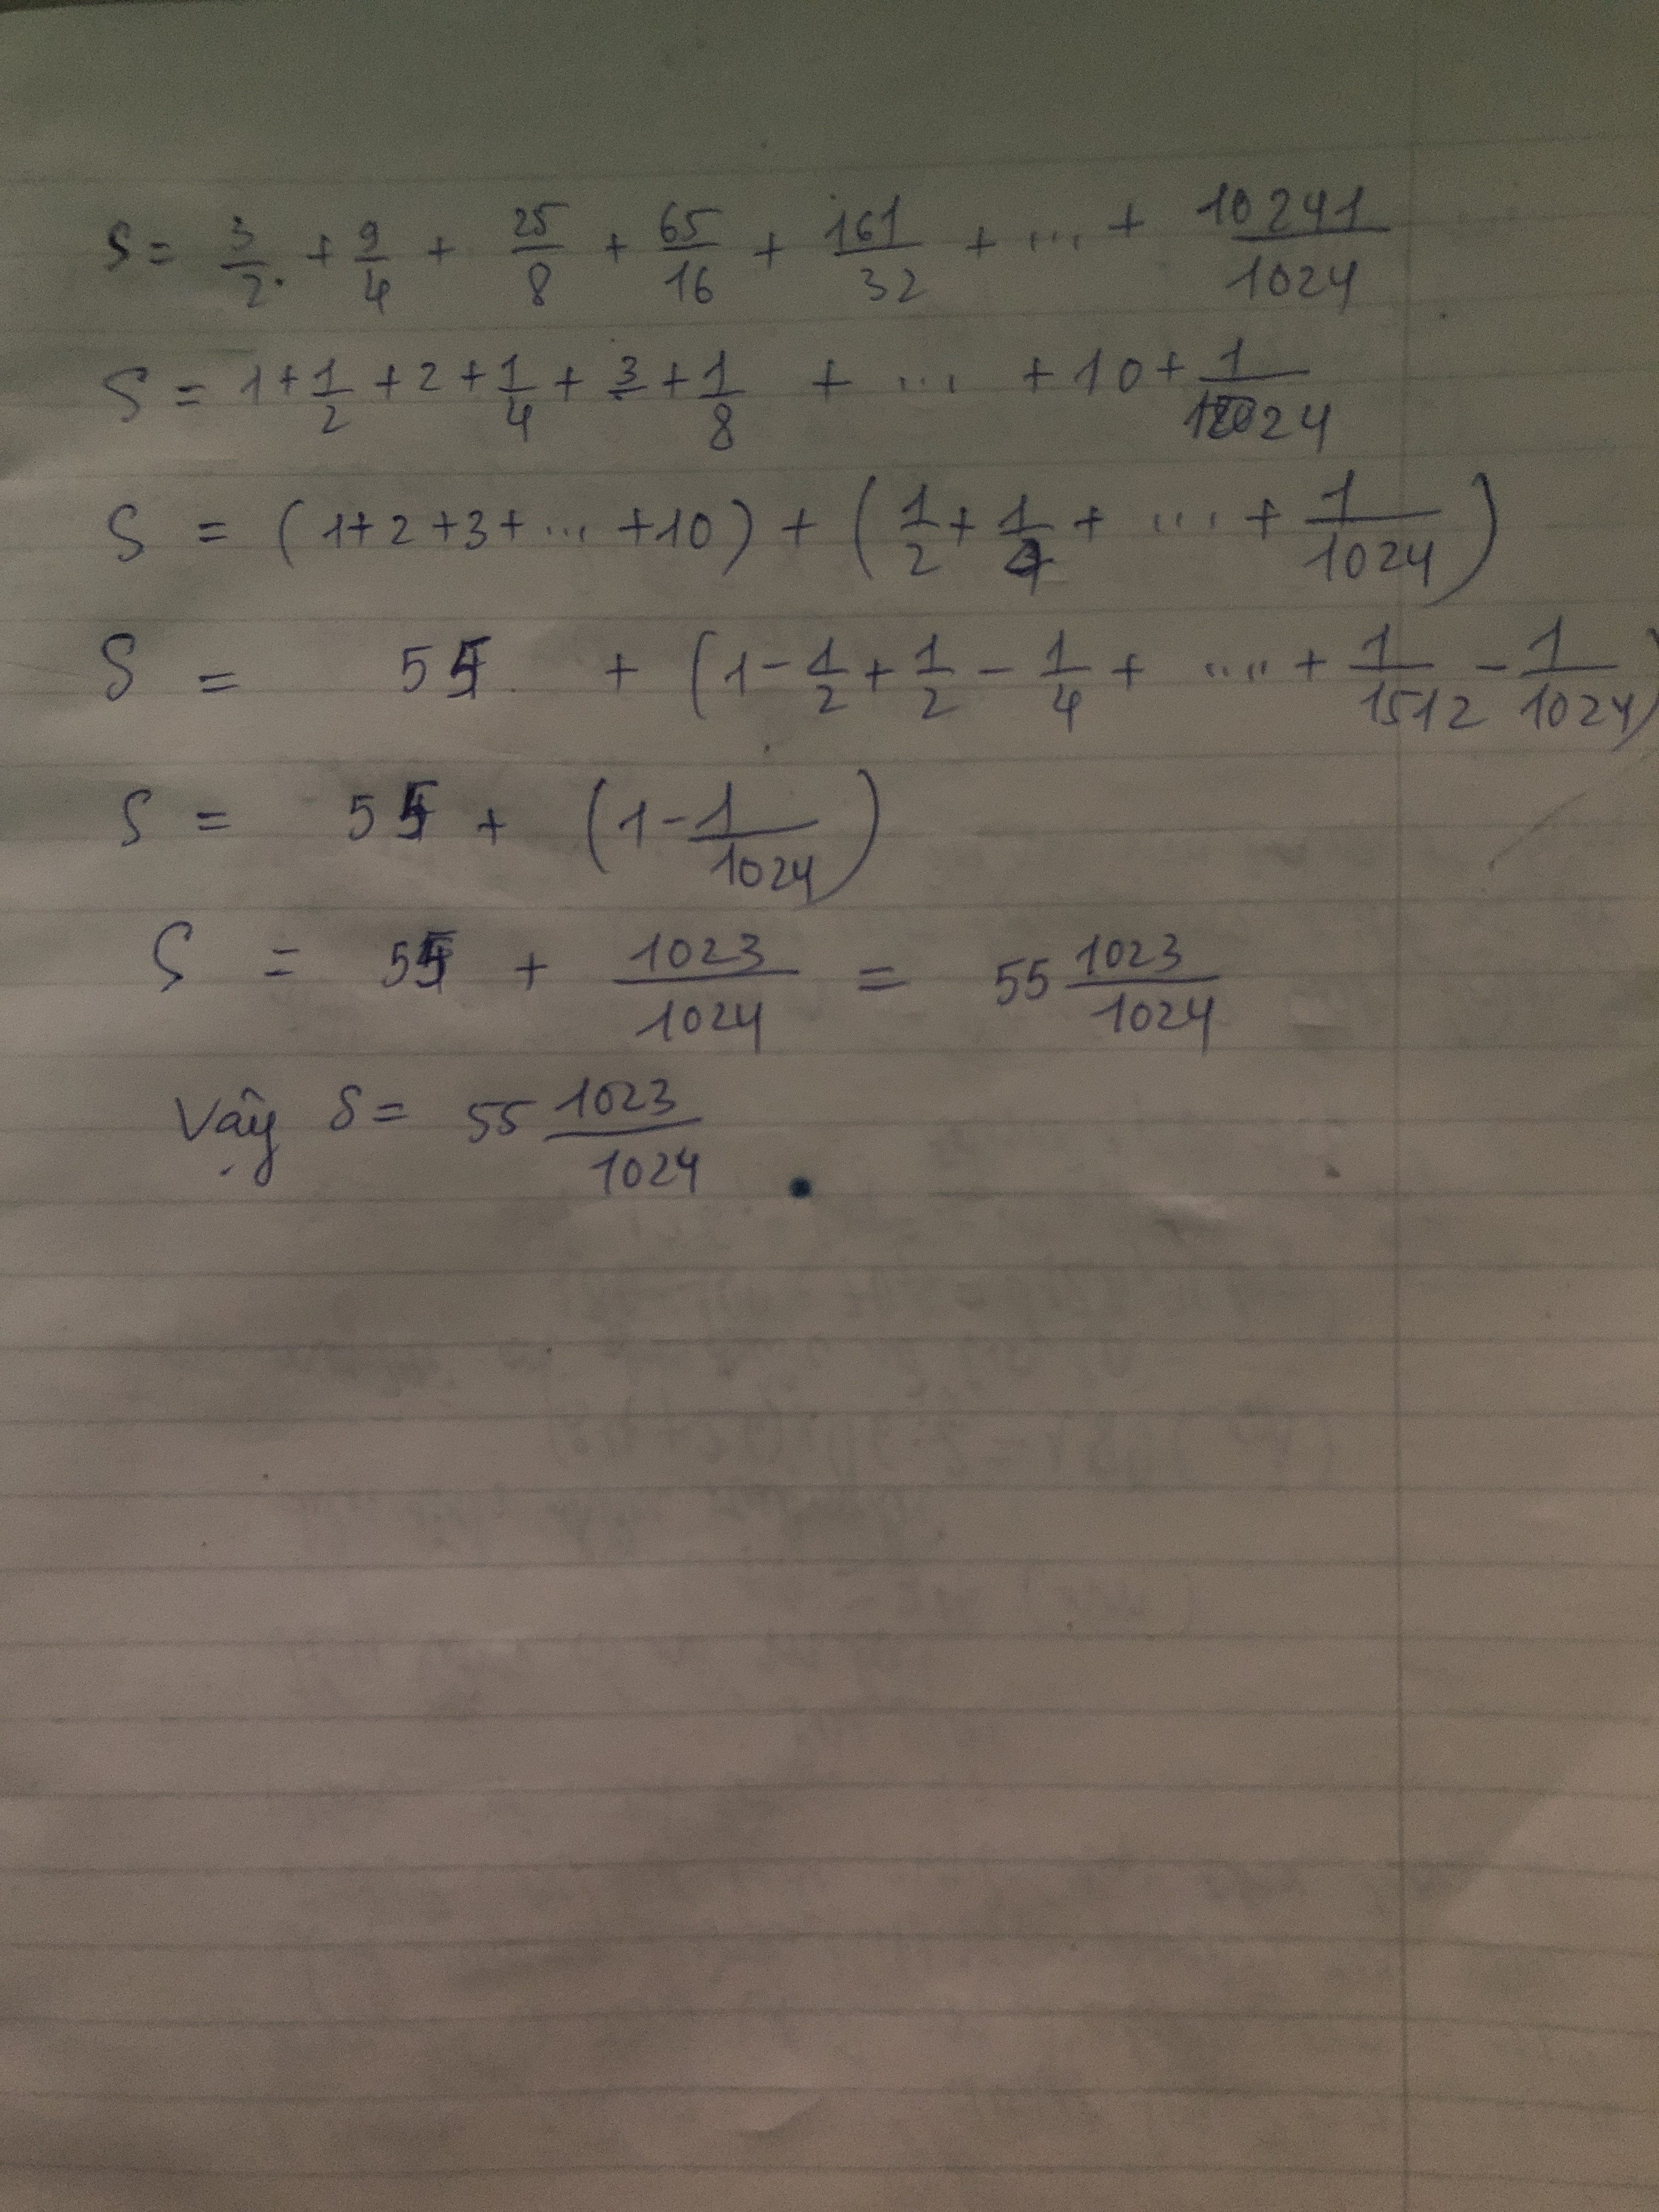 S = 3/2 + 9/4 + 25/8 + 65/16 + 161/32 + ... + 10241/1024
S = 1 + 1/2 + 2 + 1/4 + 3 + 1/8 + ... + 10 + 1/1024
S = (1 + 2 + 3 + ... + 10) + (1/2 + 1/4 + ... + 1/1024)
S = 55 + (1 - 1/2 + 1/2 - 1/4 + .... + 1/1512 - 1/1024)
S = 55 + (1 - 1/1024)
S = 55 + 1023/1024 = 55 1023/1024
Vậy S = 55 1023/1024